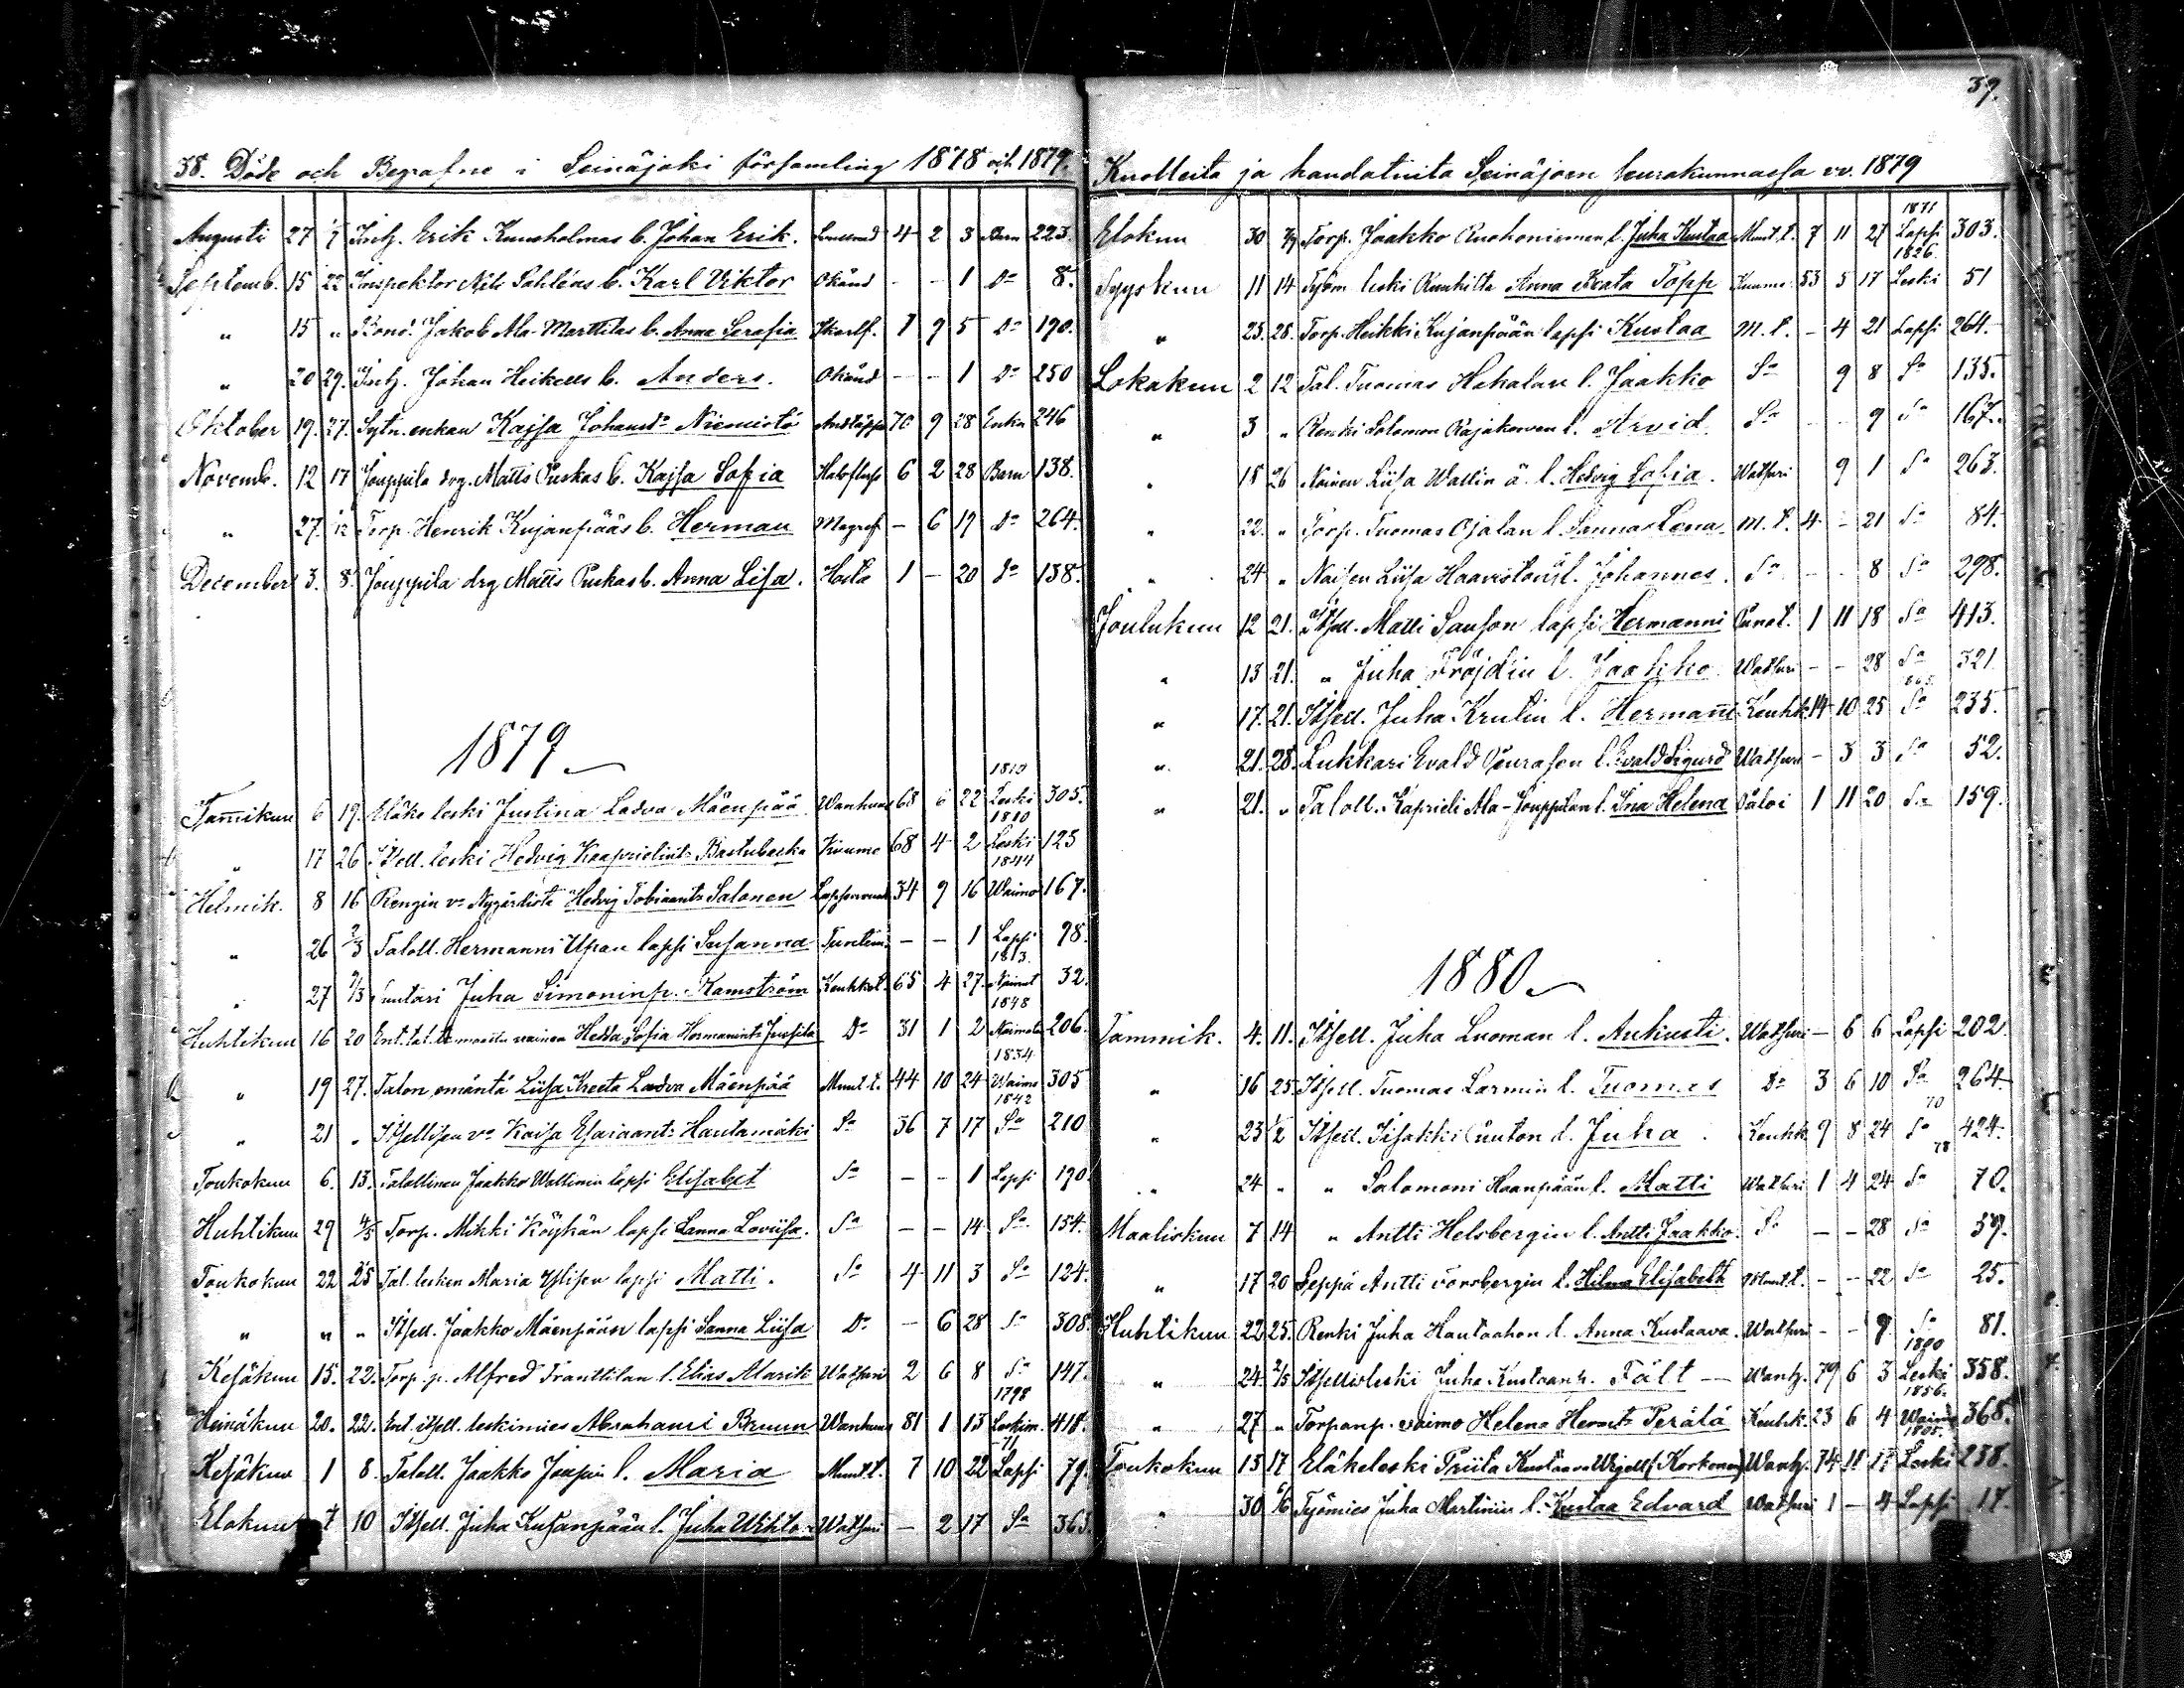 38. Döde och Begrafne i Seinäjoki församling 1878 och 1879.
Augusti 27 Inh. Erik Kuusholmas b. Johan Erik. 4 2 3 Barn 223.
Septemb. 15 22 Inspektor Nils Sahléns b. Karl Viktor Okänd - - 1 Do 8.
" 15 " Bond. Jakob Ala-Marttilas b. Anna Serafia 1 9 5 Do 190.
" 20 29. Inh. Johan Heikells b. Anders. Okänd - - 1 Do 250
Oktober 19. 27. Sytn. enkan Kajsa Johansdr Niemistö Andtäppa 70 9 28 Enka 246
Novemb. 12 17 Jouppila drg. Matts Puskas b. Kajsa Sofia 6 2 28 Barn 138.
" 27. Torp. Henrik Kujanpääs b. Herman - 6 19 Do 264.
December 3. 8. Jouppila drg Matts Puskas b. Anna Lisa. Hosta 1 - 20 Do 138.
1879
Tammikun 6 19. Eläke leski Justina Ladva Mäenpää Wanhuus 68 6 22 1810 Leski 305.
" 17 26 Itsell. leski Hedvig Kaaprielint. Bastubacka Kuume 68 4 2 1810 Leski 125
Helmik. 8 16 Rengin vo Nygårdista Hedvig Tobiaant. Salonen 34 9 16 1844 Waimo 167.
" 26 2/3 Taloll. Hermanni Upan lapsi Susanna Tuntem. - - 1 Lapsi 98.
" 27 2/3 Suntari Juha Simoninp. Kamström Keuhkot. 65 4 27. 1813. 32.
Huhtikun 16 20 Hedda Sofia Hermanint. Do 31 1 2 1848 206.
" 19 27. Talon emäntä Liisa Kreeta Ladva Mäenpää Muut t. 44 10 24 1834 Waimo 305
" 21 " Itsellisen vo Kaisa Esaiaant. Hautamäki So 36 7 17 1842 So 210
Toukokun 6. 13. Talollinen Jaakko Wallinin lapsi Elisabet So - - 1 Lapsi 190
Huhtikun 29 4/5 Torp. Mikki Köykän lapsi Sanna Loviisa. So - - 14 So 154.
Toukokun 22 25 Tal. lesken Maria Yllisen lapsi Matti. So 4 11 3 So 124.
" " " Itsell. Jaakko Mäenpään lapsi Sanna Liisa Do - 6 28 So 308.
Kesäkun 15. 22. Torp. p. Alfred Tranttilan l. Elias Marik Watsuri 2 6 8 So 147.
Heinäkun 20. 22. Ent. itsell. leskimies Abrahami Bruun Wanhuus 81 1 13 1798 Leskim. 418.
Kesäkun 1 8. Taloll. Jaakko Jaapin l. Maria Muut t. 7 10 22 71 Lapsi 79.
Elokun 7 10 Itsell. Juha Kujanpään l. Juha Wihtori Watsuri - 2 17 So 363.
39.
Kuolleita ja haudatuita Seinäjoen seurakunnassa vv. 1879
Elokun 30 Torp. Jaakko Ruohoniemen l. Juha Kustaa Muut. t. 7 11 27 1871 Lapsi 303.
Syyskun 11 14 Työm. leski Anna Kreata Topp Kuume 53 5 17 1826. Leski 51
" 25. 28. Torp. Heikki Kujanpään lapsi Kustaa M. t. - 4 21 Lapsi 264.
Lokakun 2 12 Tal. Tuomas Hakalan l. Jaakko So 9 8 So 135.
" 3 " Renki Salomon Rajakorven l. Arvid So - - 9 So 167.
" 18 26 Nainen Liisa Wallin ä. l. Hedvig Sofia. Watsuri 9 1 So 263.
" 22. " Torp. Tuomas Ojalan l. Sanna Lena M. t. 4 - 21 So 84.
" 24 " Naisen Liisa Haaviston l. Johannes. So - - 8 So 298.
Joulukun 12 21. Itsell. Matti Sanson lapsi Hermanni 1 11 18 So 413.
" 13 21. " Juha Fröjdin l. Jaakko Watsuri - - 28 So 321
" 17. 21. Itsell. Juha Krutin l. Hermanni Keuhk. 14 10 25 So 235.
" 21. 28. Lukkari Evald l. Evald Sigurd Watsuri - 3 3 So 52.
" 21. " Taloll. Kaprieli Ala-Jouppilan l. Ina Helena 1 11 20 So 159.
1880
Tammik. 4. 11. Itsell. Juha Luoman l. Aukusti. Watsuri - 6 6 Lapsi 202
" 16 25. Itsell. Tuomas Larmin l. Tuomas Do 3 6 10 So 264.
" 23 1/2 Itsell. Iisakki l. Juha. Keuhk. 9 8 24 70 So 424.
" 24 " " Salomoni Haanpään l. Matti Watsuri 1 4 24 78 So 70.
Maaliskun 7 14 " Antti Helsbergin l. Antti Jaakko. So - - 28 So 39.
" 17 20 Seppä Antti l. Hilma Elisabeth Muut t. - - 22 So 25.
Huhtikun 22 25. Renki Juha Hautaahon l. Anna Kustaava. Watsuri - - 9 So 81.
" 24. 2/5 Itsellisleski Juha Kustaanp. Fält Wanh. 79 6 3 1800 Leski 358.
" 27 " Torpanp. vaimo Helena Hermt. Perälä Keuhk. 23 6 4 1856. Waimo 368.
Toukokun 13 17 Eläkeleski Priita Kustaava (Korkonen) Wanh. 74 11 1805. Leski 238.
" 30 Työmies Juha Martinin l. Kustaa Edvard Watsuri 1 - 4 Lapsi 17.